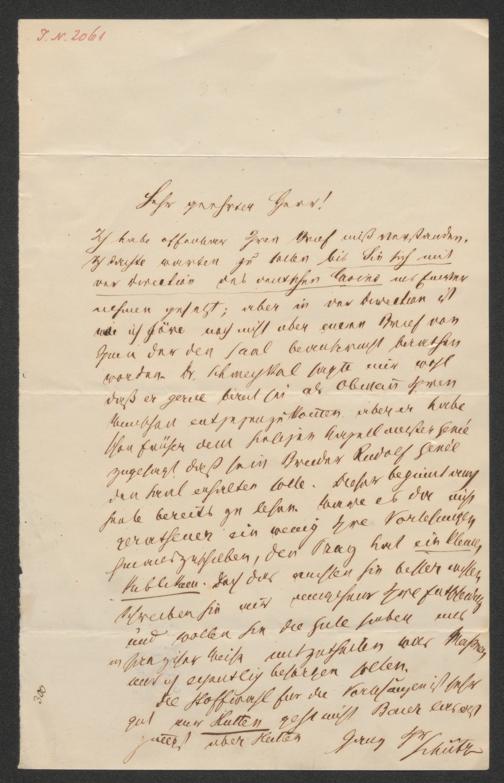 I. N. 2061
Sehr geehrter Herr!
Ich habe offenbar Ihren Brief mißverstanden.
Ich dachte warten zu sollen bis Sie sich mit
der Direction des deutschen Casino ins Einver
nehmen gesetzt; aber in der Direction ist
wie ich höre noch nicht über einen Brief von
Ihnen der den Saal beansprucht berathen
worden. Dr. Schmeykal sagte mir wohl
daß er gerne bereit sei als Obmann Ihren
Wünschen entgegenzukommen aber er habe
schon früher dem hiesigen Kapellmeister Genée
zugesagt daß sein Bruder Rudolf Genée
den Saal erhalten solle. Dieser beginnt auch
heute bereits zu lesen. Wäre es da nicht
gerathener ein wenig Ihre Vorlesungen
hinauszuschieben, den Prag hat ein kleines
Publikum. Doch das müssen Sie besser wissen
Schreiben Sie mir
und wollen Sie die Güte haben
in Weise mitzutheilen was
ich eigentlich besorgen sollen.
Die Stoffwahl für die Vorlesungen ist sehr
gut nur Hutten geht nicht Bauer
über Hutten
Ganz Ihr
Schütz
300